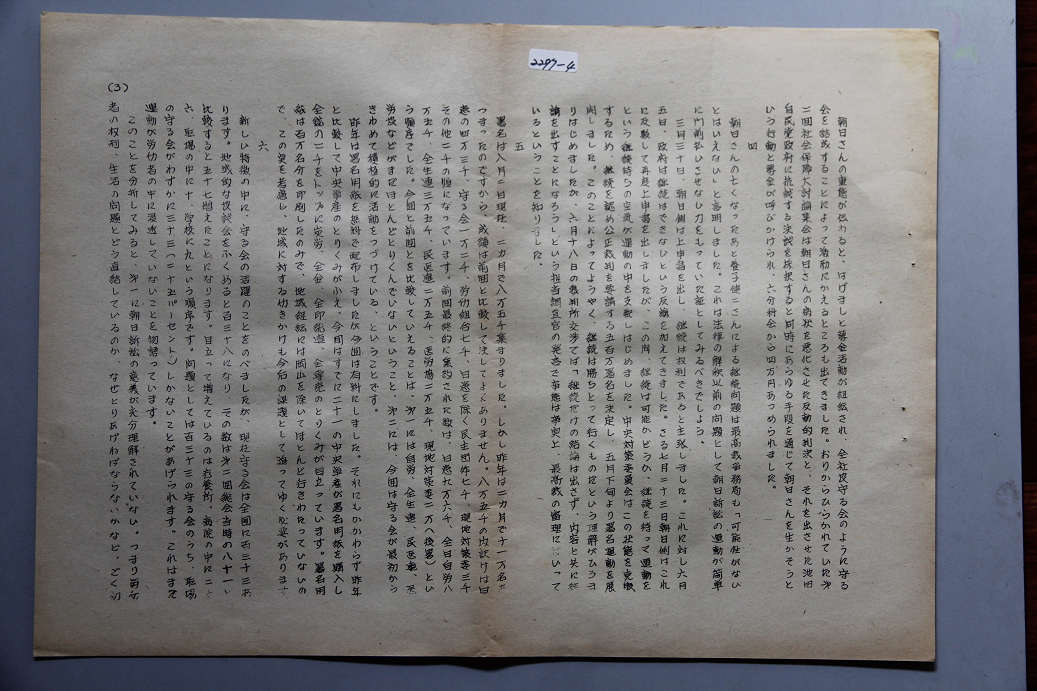 2297-4
朝日さんの重態が伝わると、はげましと募金活動が組織され、全社保守る会のように守る
会を結成することによって激励にかえるところも出てきました。おりからひらかれていた第
二回社会保障大討論集会は朝日さんの病状を悪化させた反動的判決と、それを出させた池田
自民党政府に抗議する決議を採択すると同時にあらゆる手段を通じて朝日さんを生かそうと
いう行動と募金が呼びかけられ、六分科会から四万円あつめられました。
四
朝日さんの亡くなったあと養子健二さんによる継続問題は最高裁事務局も「可能性がない
とはいえない」と言明しました。これは法律の解釈以前の問題として朝日訴訟の運動が簡単
に門前払いさせない力をもっていた証としてみるべきでしよう。
三月三十日、朝日側は上申書を出し、継続は権利であると主張しました。これに対し六月
五日、政府は継続はできないという反論を加えてきました。さらに七月二十三日朝日側はこれ
に反駁して再度上申書を出しましたが、この間、継続は可能かどうか、継続を待って運動を
という継続待ちの空気が運動の中を支配しはじめました。中央対策委員会はこの状態を克服
するため、継続を認め公正裁判を要請する五百万署名を決定し、五月下旬より署名運動を展
開しました。このことによってようやく、継続は勝ちとって行くものだという理解がひろま
りはじめましたが、六月十八日の裁判所交渉では「継続だけの結論は出さず、内容と共に結
論を出すことになろう」という担当調査官の発言で事態は事実上、最高裁の審理にはいって
いるということを知りました。
五
署名は八月二日現在、二カ月で八万五千集まりました。しかし昨年は二カ月で十一万名あ
つまったのですから、成績は前回と比較して決してよくありません。八万五千の内訳けは日
患の四万三千、守る会一万二千、労働組合七千、日患を除く民主団体七千、現地対策委三千
その他二千の順になっています。前回最終的に集約された数は、日患十九万六千、全日自労八
万五千、全生連三万五千、民医連二万五千、医労協二万五千、現地対策委二万（後略）とい
う順序でした。今回と前回とを比較していえることは、第一には自労、全生連、民医連、医
労協などがまだほとんどとりくんでいないということ、第二には、今回は守る会が最初から
きわめて積極的に活動をつづけている、ということです。
昨年は署名用紙を無料で配布しましたが今回は有料にしました。それにもかかわらず昨年
と比較して中央単産のとりくみが早え、今回はすでに二十一の中央単産が署名用紙を購入し
全逓の二千をトップに炭労、全金、全印総連、全専売のとりくみが目立っています。署名用
紙は百万名分を印刷したのみで、地域組織には岡山を除いてほとんど行きわたっていないの
で、この点を考慮し、地域に対する働きかけも今后の課題として追ってゆく必要があります。
六
新しい特徴の中に、守る会の活躍のことをのべましたが、現在守る会は全国に百三十三あ
ります。地域的な協議会をふくめると百三十八になり、その数は第二回総会当時の八十一と
比較すると五十七増えたことになります。目立って増えているのは療養所、病院の中に二十
六、職場の中に十、学校に九という順序です。問題としては百三十三の守る会のうち、職場
の守る会がわずかに三十三（二十五パーセント）しかないことがあげられます。これはまだ
運動が労働者の中に浸透していないことを物語っています。
このことを分析してみると、第一に朝日訴訟の意義が充分理解されていない。つまり労働
者の権利、生活の問題とどう直結しているのか、なぜとりあげねばならないかなど、ごく初
(3)